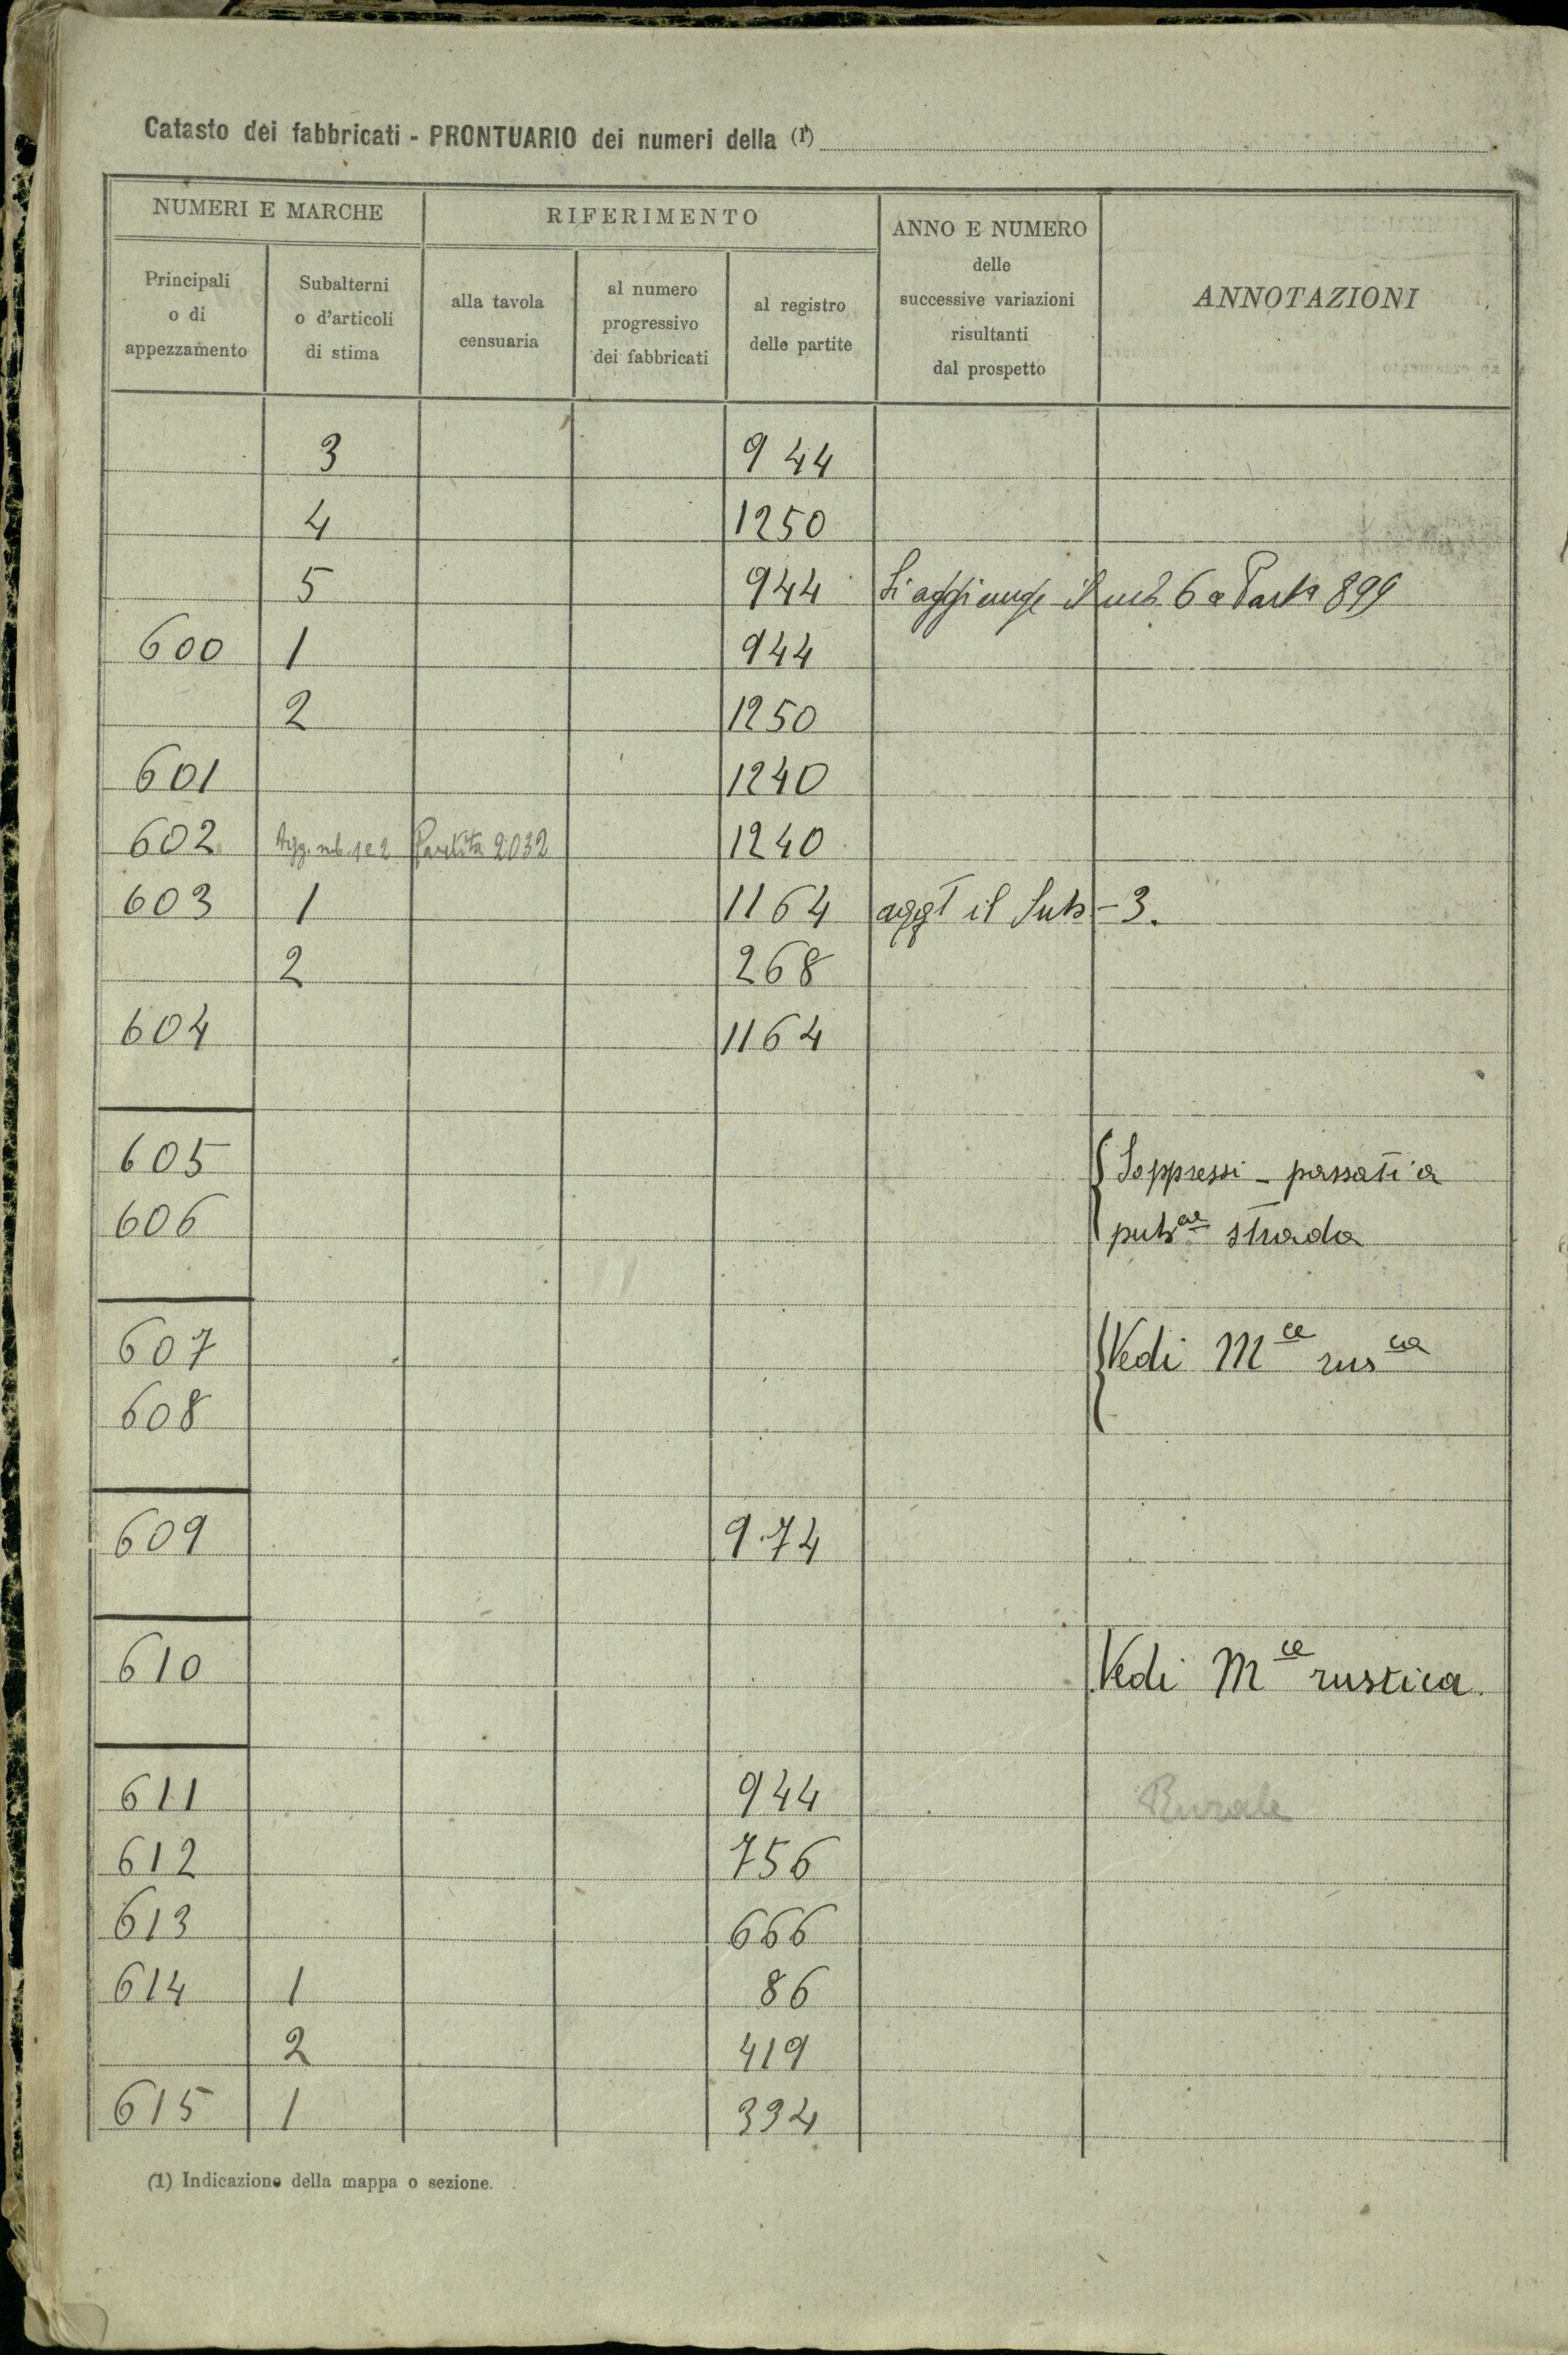 Catasto dei fabbricati - PRONTUARIO dei numeri della (1)
NUMERI E MARCHE
RIFERIMENTO
ANNO E NUMERO
delle
successive variazioni
risultanti
dal prospetto
ANNOTAZIONI
Principali
o di
appezzamento
Subalterni
o d'articoli
di stima
alla tavola
censuaria
al numero
progressivo
dei fabbricati
al registro
delle partite
3 944
4 1250
5 944 Si aggiunge il sub 6 a Parta 899
600 1 944
2 1250
601 1240
602 Agg. sub. 1 e 2 Partita 2032 1240
603 1 1164 aggt il Sub - 3.
2 268
604 1164
605 Soppressi - passati a
606 pubca strada
607 Vedi Mce rusca
608
609 974
610 Vedi Mce rustica.
611 944 Rurale
612 756
613 666
614 1 86
2 419
615 1 394
(1) Indicazione della mappa o sezione.